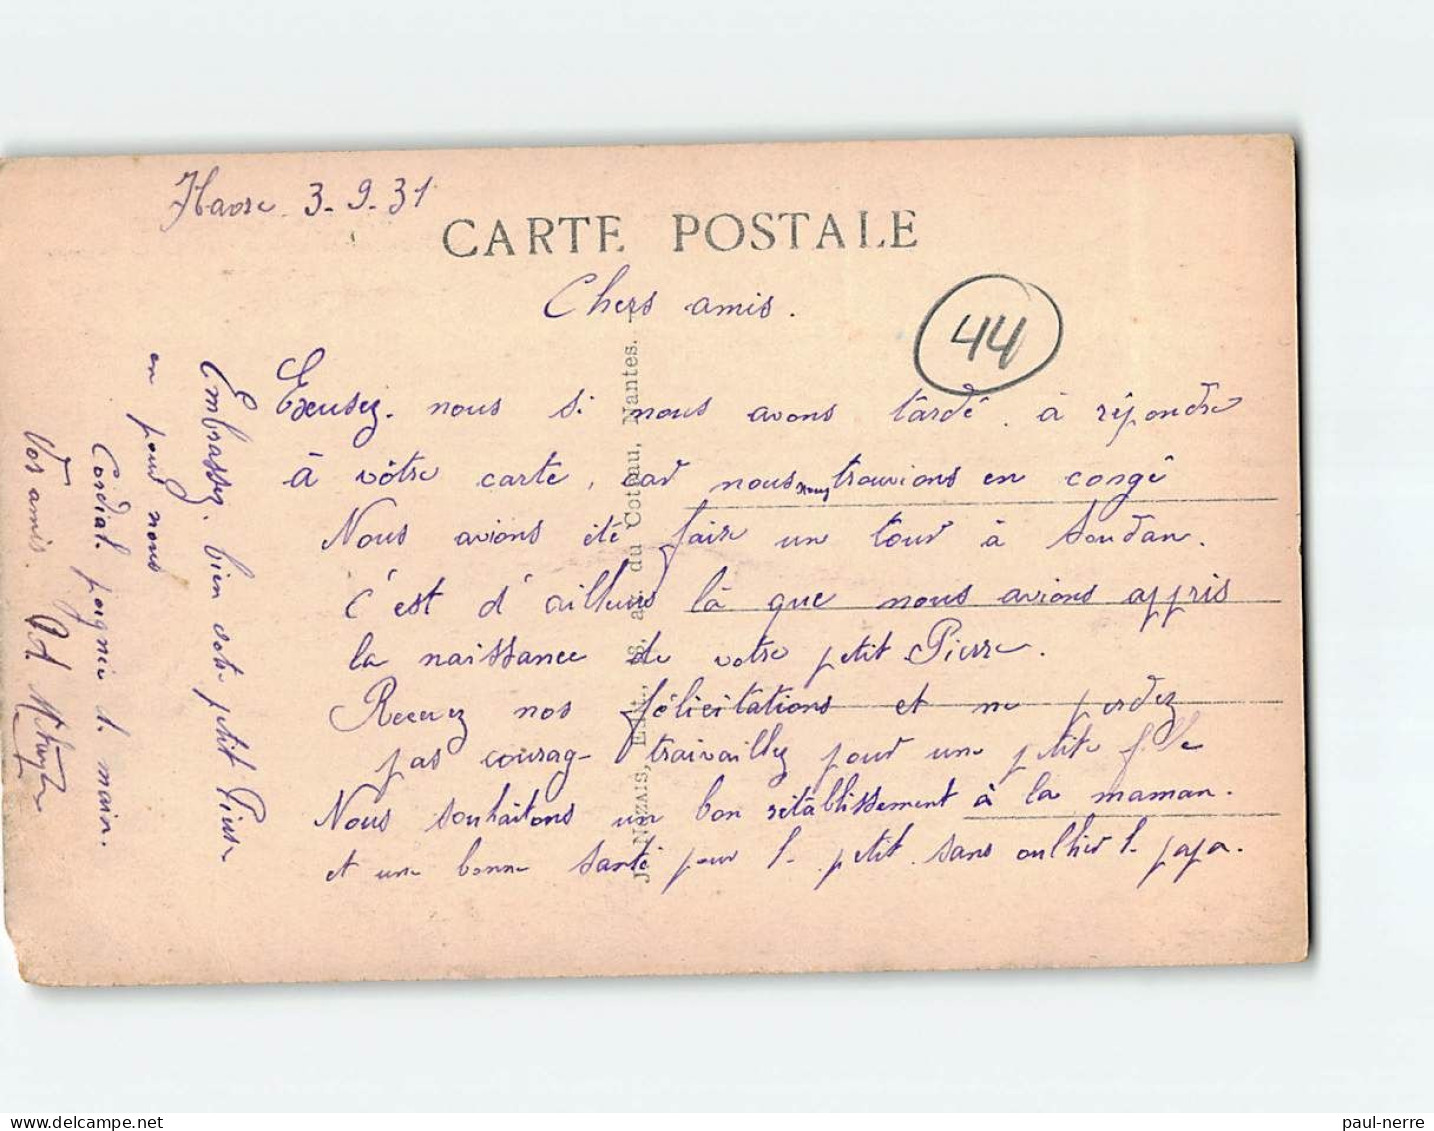 Havre. 3-9-31
CARTE POSTALE
Chers amis.
44
Excusez. nous si nous avons tardé à répondre
à vôtre carte, car nous nous trouvions en congé
Nous avions été faire un tour à Soudan.
C'est d'ailleurs là que nous avions appris
la naissance de votre petit Pierre.
Recevez nos félicitations et ne perdez
pas courage travaillez pour une petite fille
Nous souhaitons un bon rétablissement à la maman.
et une bonne santé pour le petit sans oublier le papa.
Embrassez. bien votre petit Pierre
en pour nous
Cordial. poignée d. main.
Vos amis.
J. NOZAIS, du Coteau, Nantes.
paul-nerre